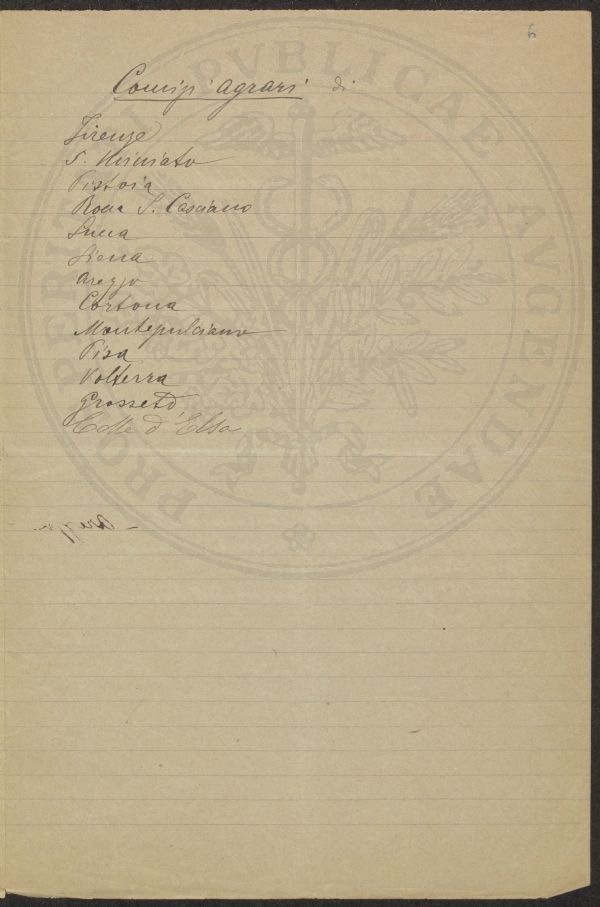 6
Comizi agrari di
Firenze
S. Miniato
Pistoia
Rocca S. Casciano
Lucca
Siena
Arezzo
Cortona
Montepulciano
Pisa
Volterra
Grosseto
Colle d'Elsa